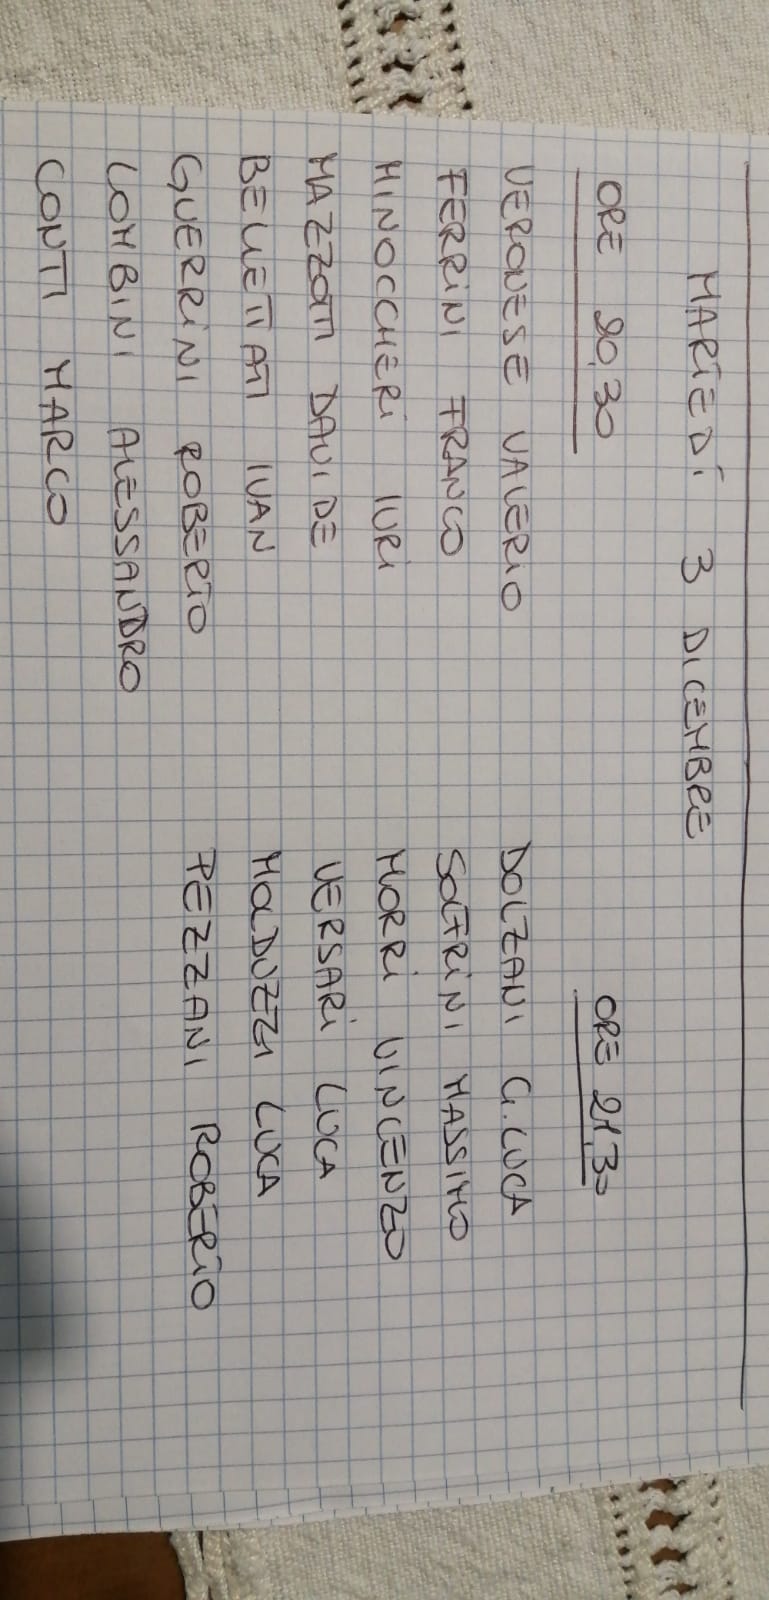 MARTEDÍ 3 DICEMBRE
ORE 20,30
VERONESE VALERIO
FERRINI FRANCO
MINOCCHERI IURI
MAZZOTTI DAVIDE
BELLETTATI IVAN
GUERRINI ROBERTO
LOMBINI ALESSANDRO
CONTI MARCO
ORE 21,30
DOLZANI G.LUCA
SOLFRINI MASSIMO
MORRI VINCENZO
VERSARI LUCA
MOLDUZZI LUCA
PEZZANI ROBERTO